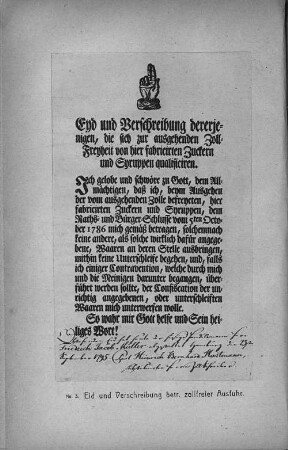 Eyd und Verschreibung dererje-
nigen, die sich zur ausgehenden Zoll-
Freyheit von hier fabricirten Zuckern
und Syruppen qualificiren.
Ich gelobe und schwöre zu Gott, dem All-
mächtigen, daß ich, beym Ausgehen
der vom ausgehenden Zolle befreyeten, hier
fabricirten Zuckern und Syruppen, dem
Raths- und Bürger-Schlusse vom 5ten Octo-
ber 1786 mich gemäß betragen, solchemnach
keine andere, als solche wirklich dafür angege-
bene, Waaren an deren Stelle ausbringen,
mithin keine Unterschleife begehen, und, falls
ich einiger Contravention, welche durch mich
und die Meinigen darunter begangen, über-
führet werden sollte, der Confiscation der un-
richtig angegebenen, oder unterschleiften
Waaren mich unterwerfen wolle.
So wahr mir Gott helfe und Sein hei-
liges Wort!
Friederich Jacob Müller
1795 Heinrich Bernhard
No 5. Eid und Verschreibung betr. zollfreier Ausfuhr.